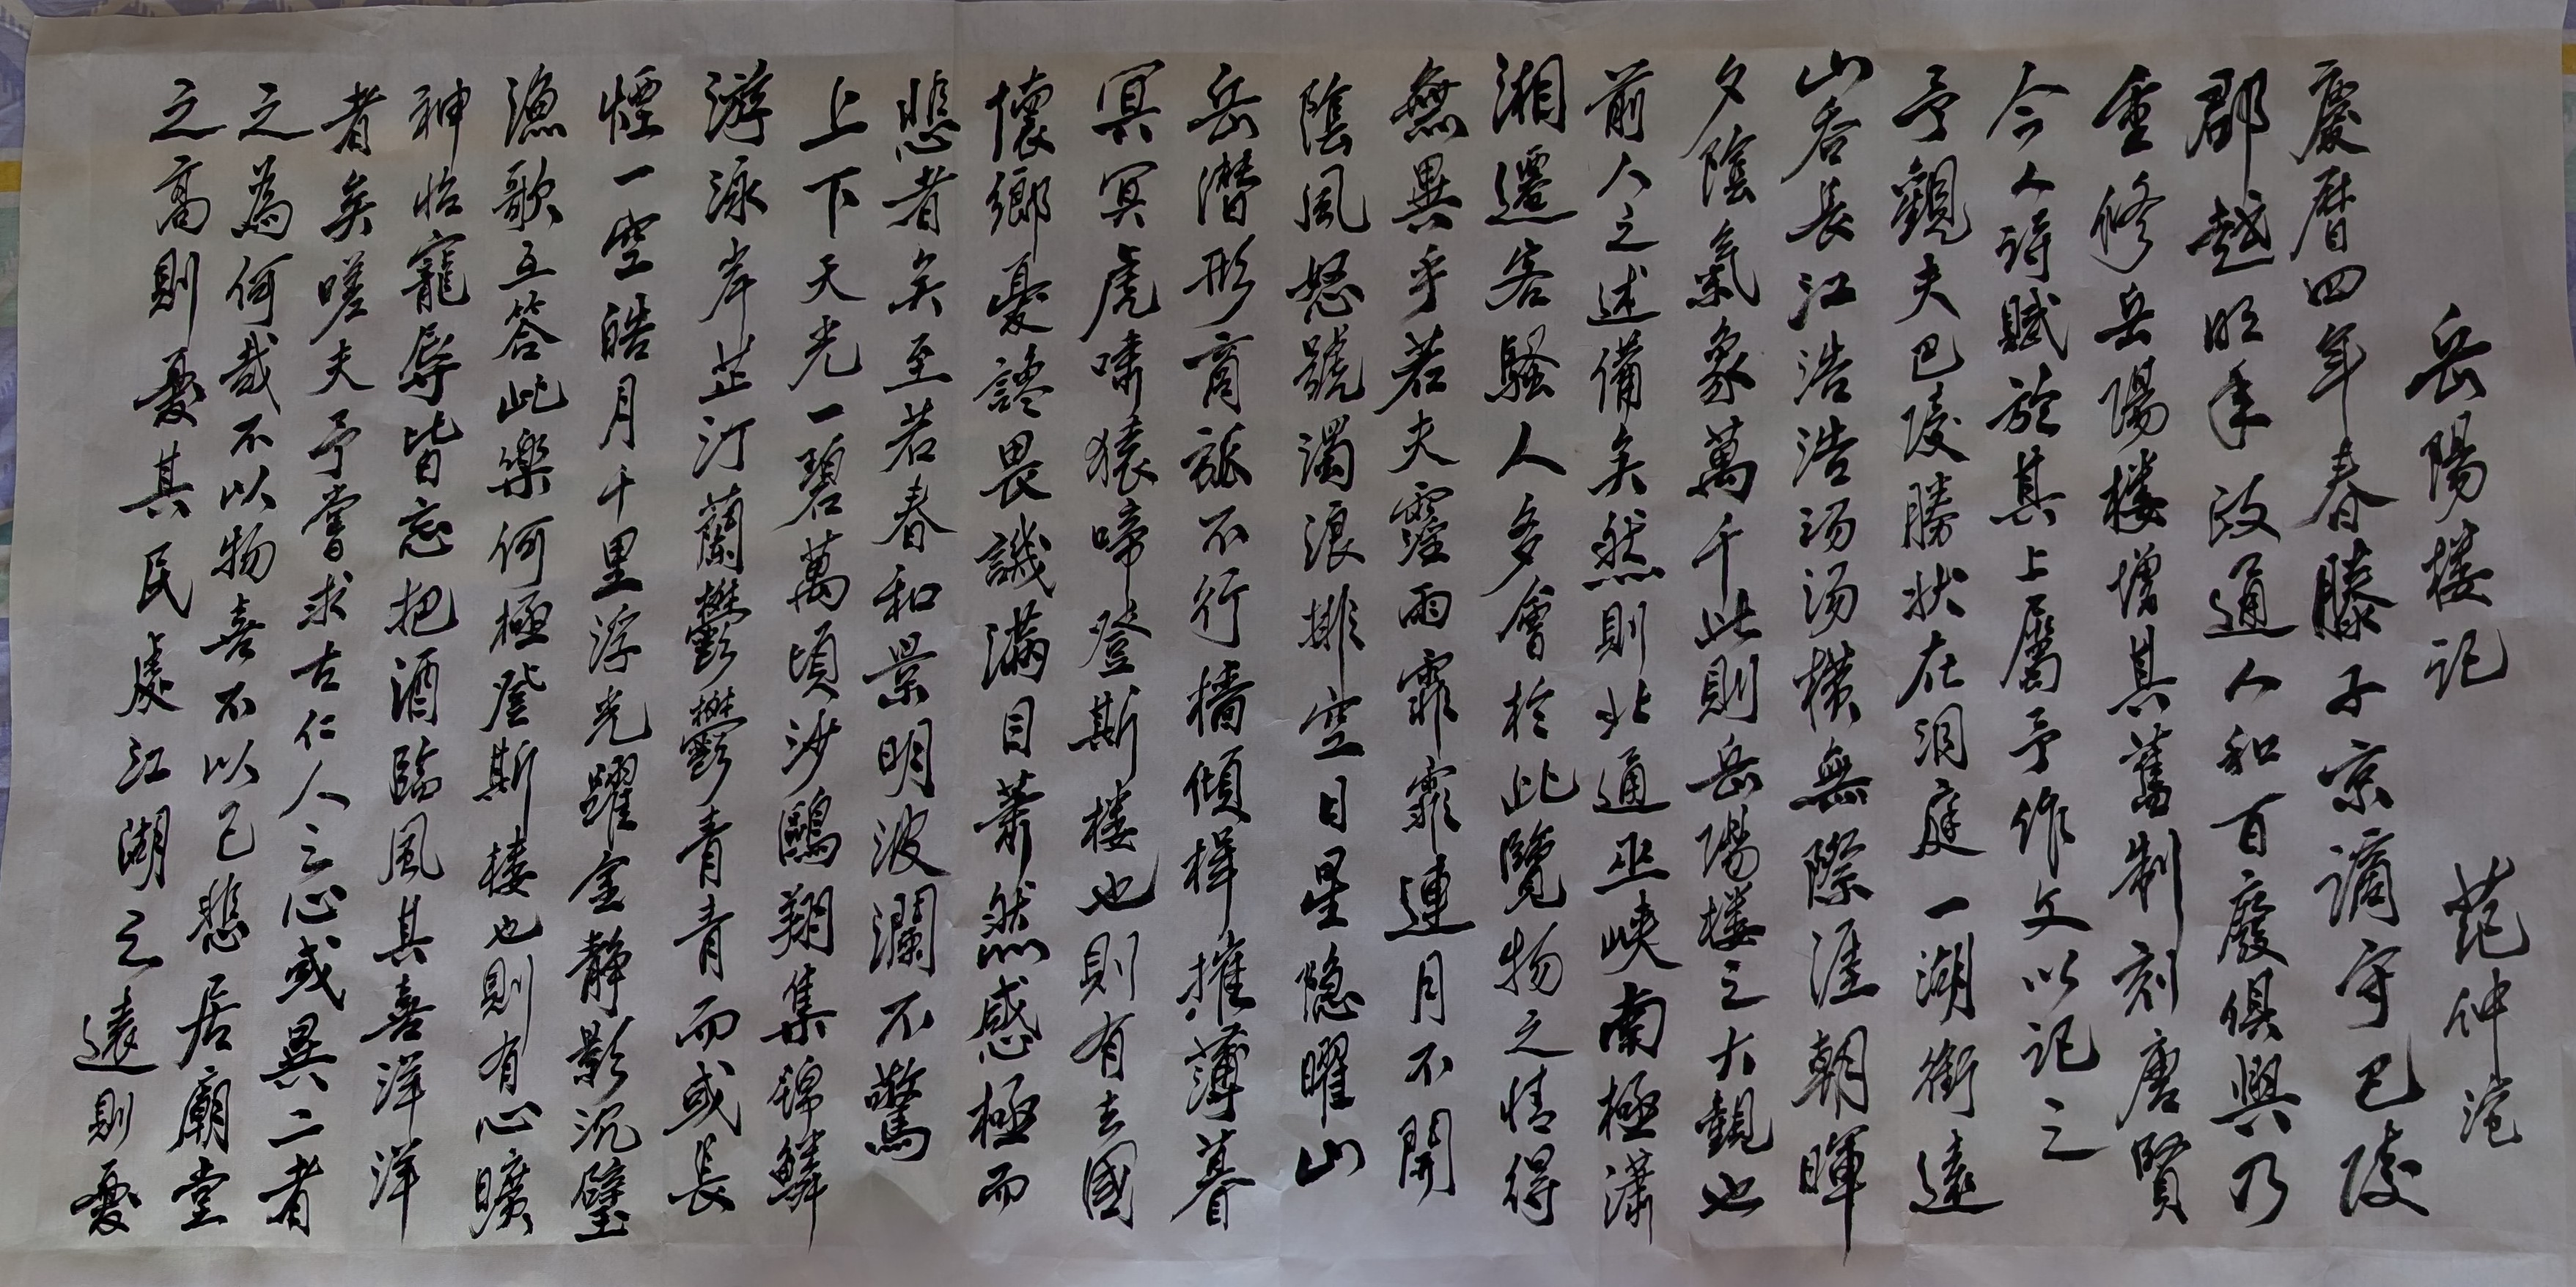 岳陽楼記 范仲淹
慶曆四年春滕子京謫守巴陵
郡越明年政通人和百廢俱興乃
重修岳陽楼增其舊制刻唐賢
今人詩賦於其上屬予作文以記之
予觀夫巴陵勝狀在洞庭一湖銜遠
山吞長江浩浩汤汤横無際涯朝暉
夕陰氣象萬千此則岳陽楼之大觀也
前人之述備矣然則北通巫峽南極瀟
湘遷客騷人多會於此覽物之情得
無異乎若夫霪雨霏霏連月不開
陰風怒號濁浪排空日星隐曜山
岳潜形商旅不行檣傾楫摧薄暮
冥冥虎嘯猿啼登斯楼也則有去國
懷鄉憂讒畏譏滿目蕭然感極而
悲者矣至若春和景明波瀾不驚
上下天光一碧萬頃沙鷗翔集錦鱗
游泳岸芷汀蘭鬱鬱青青而或長
煙一空皓月千里浮光躍金静影沉璧
漁歌互答此樂何極登斯楼也則有心曠
神怡寵辱皆忘把酒臨風其喜洋洋
者矣嗟夫予嘗求古仁人之心或異二者
之為何哉不以物喜不以己悲居廟堂
之高則憂其民處江湖之遠則憂